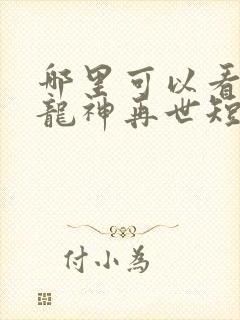 哪里可以看
龍神再世短
付小為